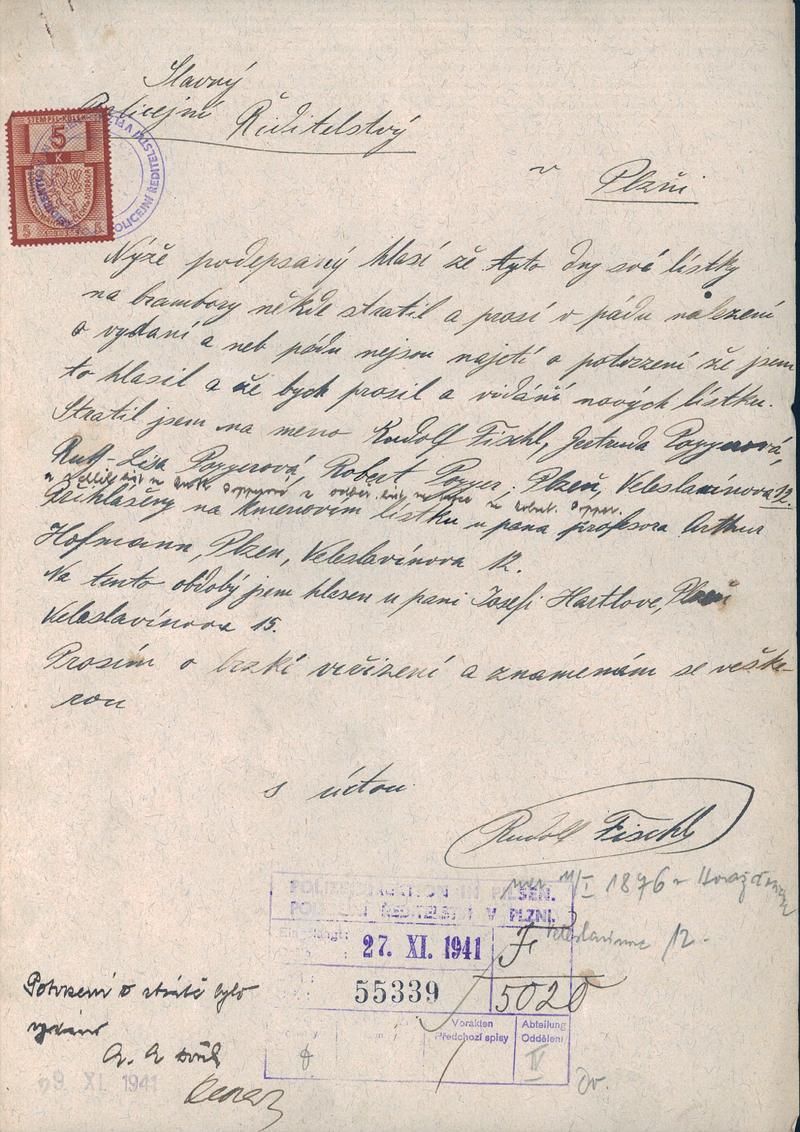 Slavný
Policejní Ředitelstvý
v Plzni
STEMPEL KOLEK
5
K
5 5
POLICEJNÍ ŘEDITELSTVÍ V
Nýže podepsaný hlasí že tyto dny své lístky
na brambory někde stratil a prosí v pádu nalezení
o vydaní a neb pádu nejsou najetí o potvrzení že jsem
to hlasil a že bych prosil a vidání nových lístku.
Stratil jsem na meno Rudolf Fischl, Gertruda Popperová,
Ruth-Lisa Popperová, Robert Popper, Plzeň, Veleslavínova 12.
a odběr. list na
Přihlašeny na kmenovím lístku u pana profesora Arthur
Hofmann, Plzen, Veleslavínova 12.
Na tento obdobý jsem hlasen u pani Josefi Hartlove, Plzeň
Veleslavínova 15.
Prosím o brzkí viřízení a znamenám se veške-
rou
s úctou
Rudolf Fischl
nar 11/I 1876 v Horažd
Veleslavínova 12.
POLIZEIDIREKTION IN PILSEN.
POLICEJNÍ ŘEDITELSTVÍ V PLZNI.
Eingelangt:
27. XI. 1941
F
55339
5020
Vorakten
Předchozí spisy
Abteilung
Oddělení
IV
Potvrzení o ztrátě bylo
vydáno
29. XI. 1941